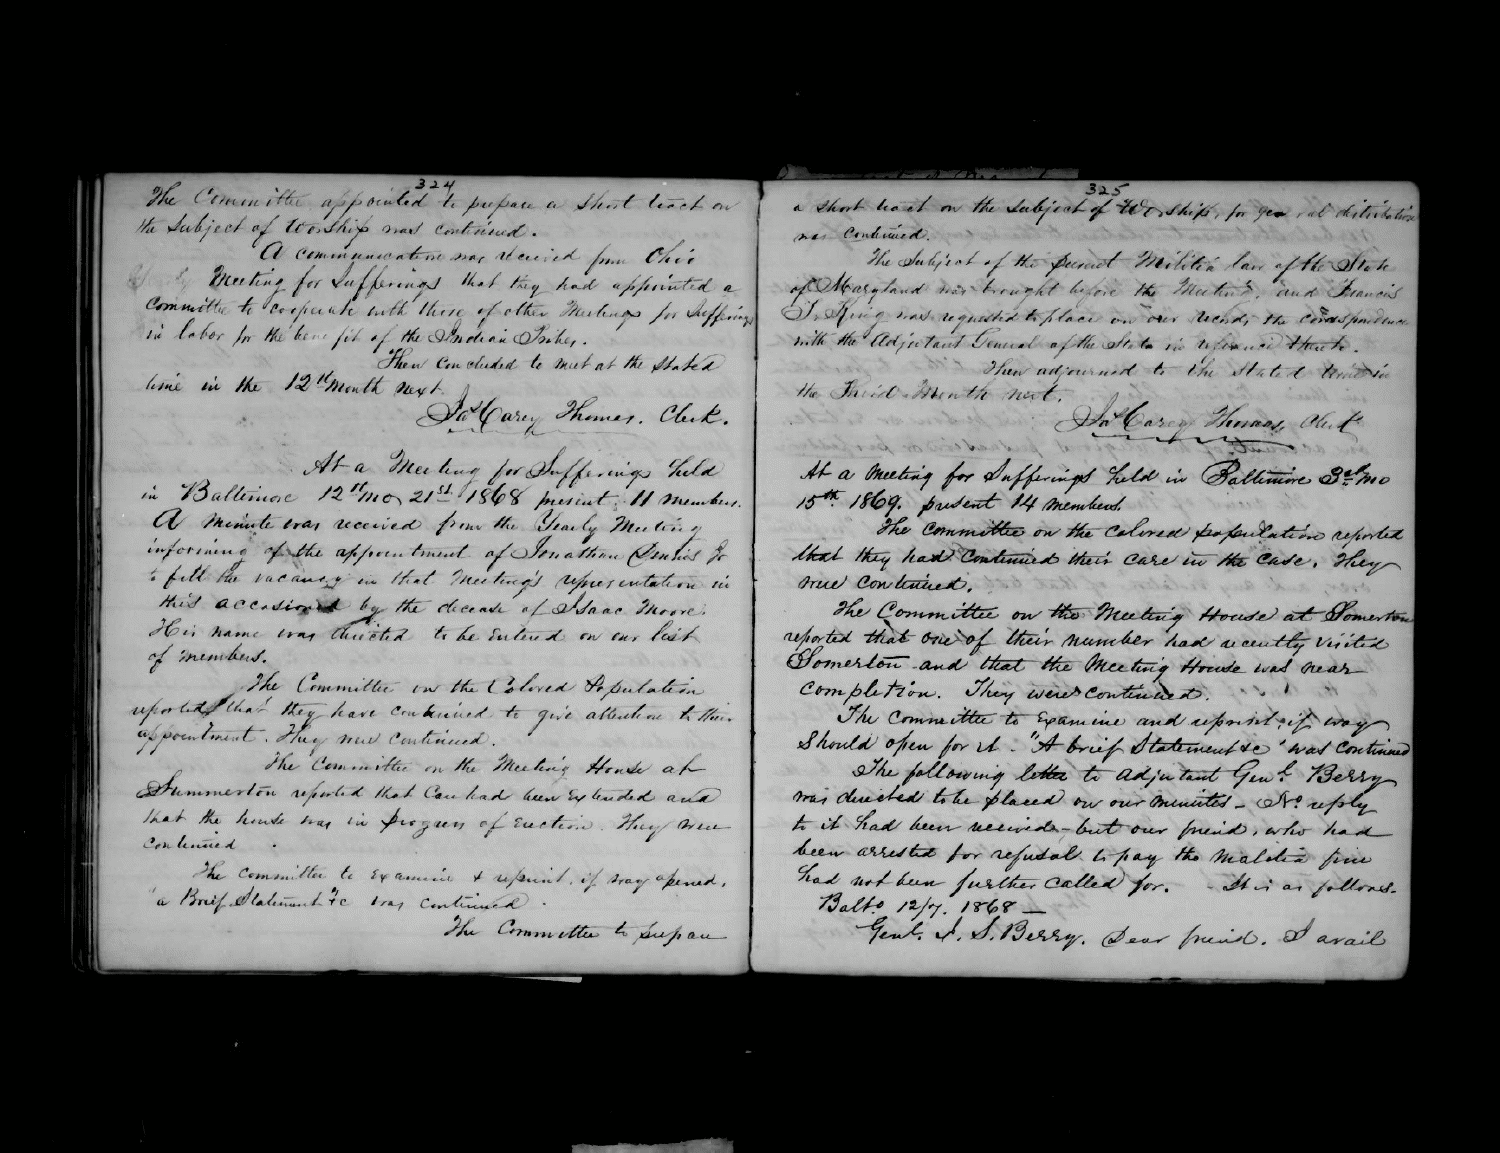 324
The Committee appointed to prepare a short tract on
the subject of Worship was continued.
A communication was received from Ohio
Meeting for Sufferings that they had appointed a
Committee to cooperate with those of other Meetings for Sufferings
in labor for the benefit of the Indian Tribes.
Then Concluded to meet at the Stated
time in the 12th Month next.
Jas Carey Thomas. Clerk.
At a Meeting for Sufferings held
in Baltimore 12th mo 21st 1868 present 11 members.
A minute was received from the Yearly Meeting
informing of the appointment of Jonathan Dennis Jr
to fill the vacancy in that Meeting's representation in
this occasioned by the decease of Isaac Moore.
His name was directed to be entered on our list
of members.
The Committee on the Colored Population
reported that they have continued to give attention to their
appointment. They were continued.
The Committee on the Meeting House at
Summerton reported that Care had been extended and
that the house was in progress of erection. They were
continued.
The committee to examine & reprint, if way opened,
"a Brief Statement &c was continued.
The Committee to prepare
325
a short tract on the subject of Worship, for general distribution
was continued.
The Subject of the present Militia law of the State
of Maryland was brought before the Meeting, and Francis
T. King was requested to place on our records the correspondence
with the Adjutant General of the State in reference thereto.
Then adjourned to the Stated time in
the Third Month next.
Jas Carey Thomas, Clerk
At a Meeting for Sufferings held in Baltimore 3rd mo
15th 1869. present 14 members.
The committee on the colored population reported
that they had continued their care in the case. They
were continued.
The Committee on the Meeting House at Somerton
reported that one of their number had recently visited
Somerton and that the Meeting House was near
completion. They were continued.
The committee to examine and reprint, if way
should open for it. "A brief Statement &c" was continued
The following letter to Adjutant Genl. Berry
was directed to be placed on our minutes - No reply
to it had been received - but our friend, who had
been arrested for refusal to pay the malitia fine
had not been further called for. - It is as follows.
Balto. 12/7. 1868 -
Genl. J. S. Berry. Dear friend. I avail